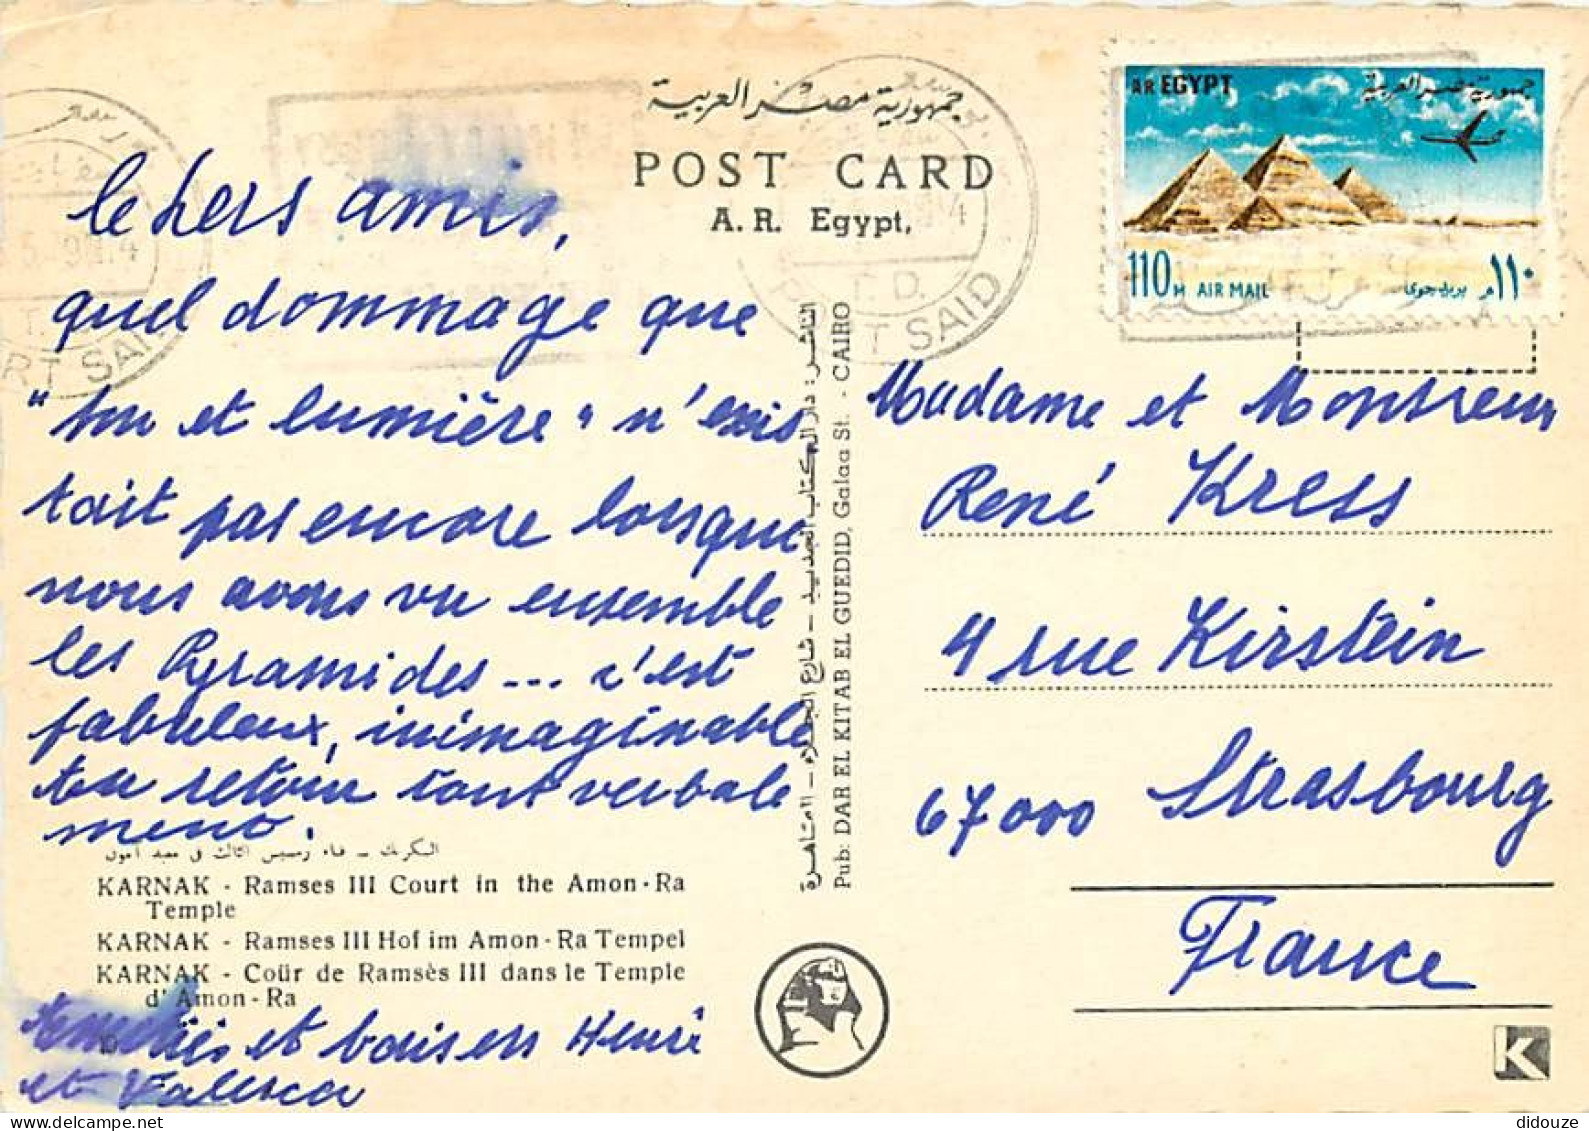 جمهورية مصر العربية
POST CARD
A. R. Egypt.
AR EGYPT
جمهورية مصر العربية
110 M AIR MAIL
بريد جوى ١١٠ م
PORT SAID
T. D.
PORT SAID
chers amis,
quel dommage que
"son et lumière" n'exis
tait pas encore lorsque
nous avons vu ensemble
les Pyramides... c'est
fabuleux, inimaginable
en retour tout verbale
ment.
الكرنك - فناء رمسيس الثالث فى معبد آمون
KARNAK - Ramses III Court in the Amon-Ra
Temple
KARNAK - Ramses III Hof im Amon-Ra Tempel
KARNAK - Coür de Ramsès III dans le Temple
d'Amon-Ra
Amitiés et baisers Henri
et Valesca
الناشر: دار الكتاب الجديد - شارع الجلاء - القاهرة
Pub: DAR EL KITAB EL GUEDID, Galaa St. - CAIRO
Madame et Monsieur
René Kress
4 rue Kirstein
67000 Strasbourg
France
K
didouze